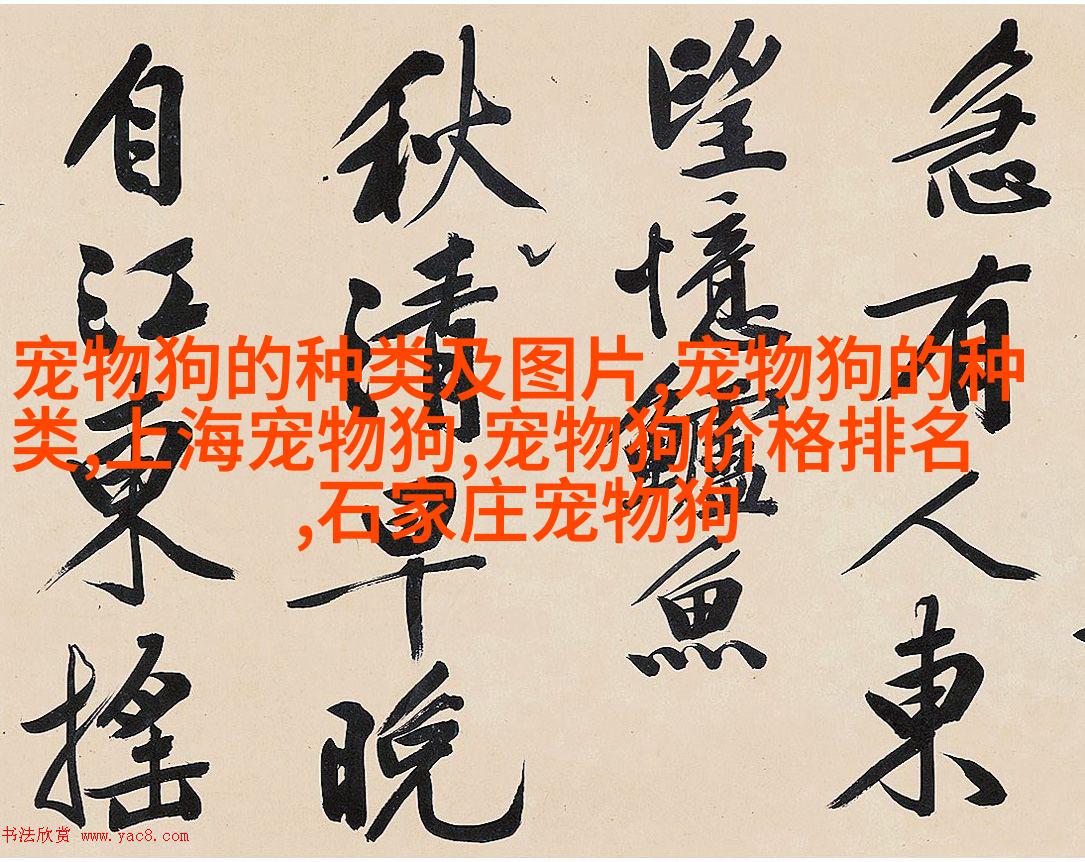 急有人東
望憶鱸魚
秋清早晚
自江東搖
宠物狗的种类及图片,宠物狗的种
类,上海宠物狗,宠物狗价格排名
,石家庄宠物狗
书法欣赏 www.yac8.com